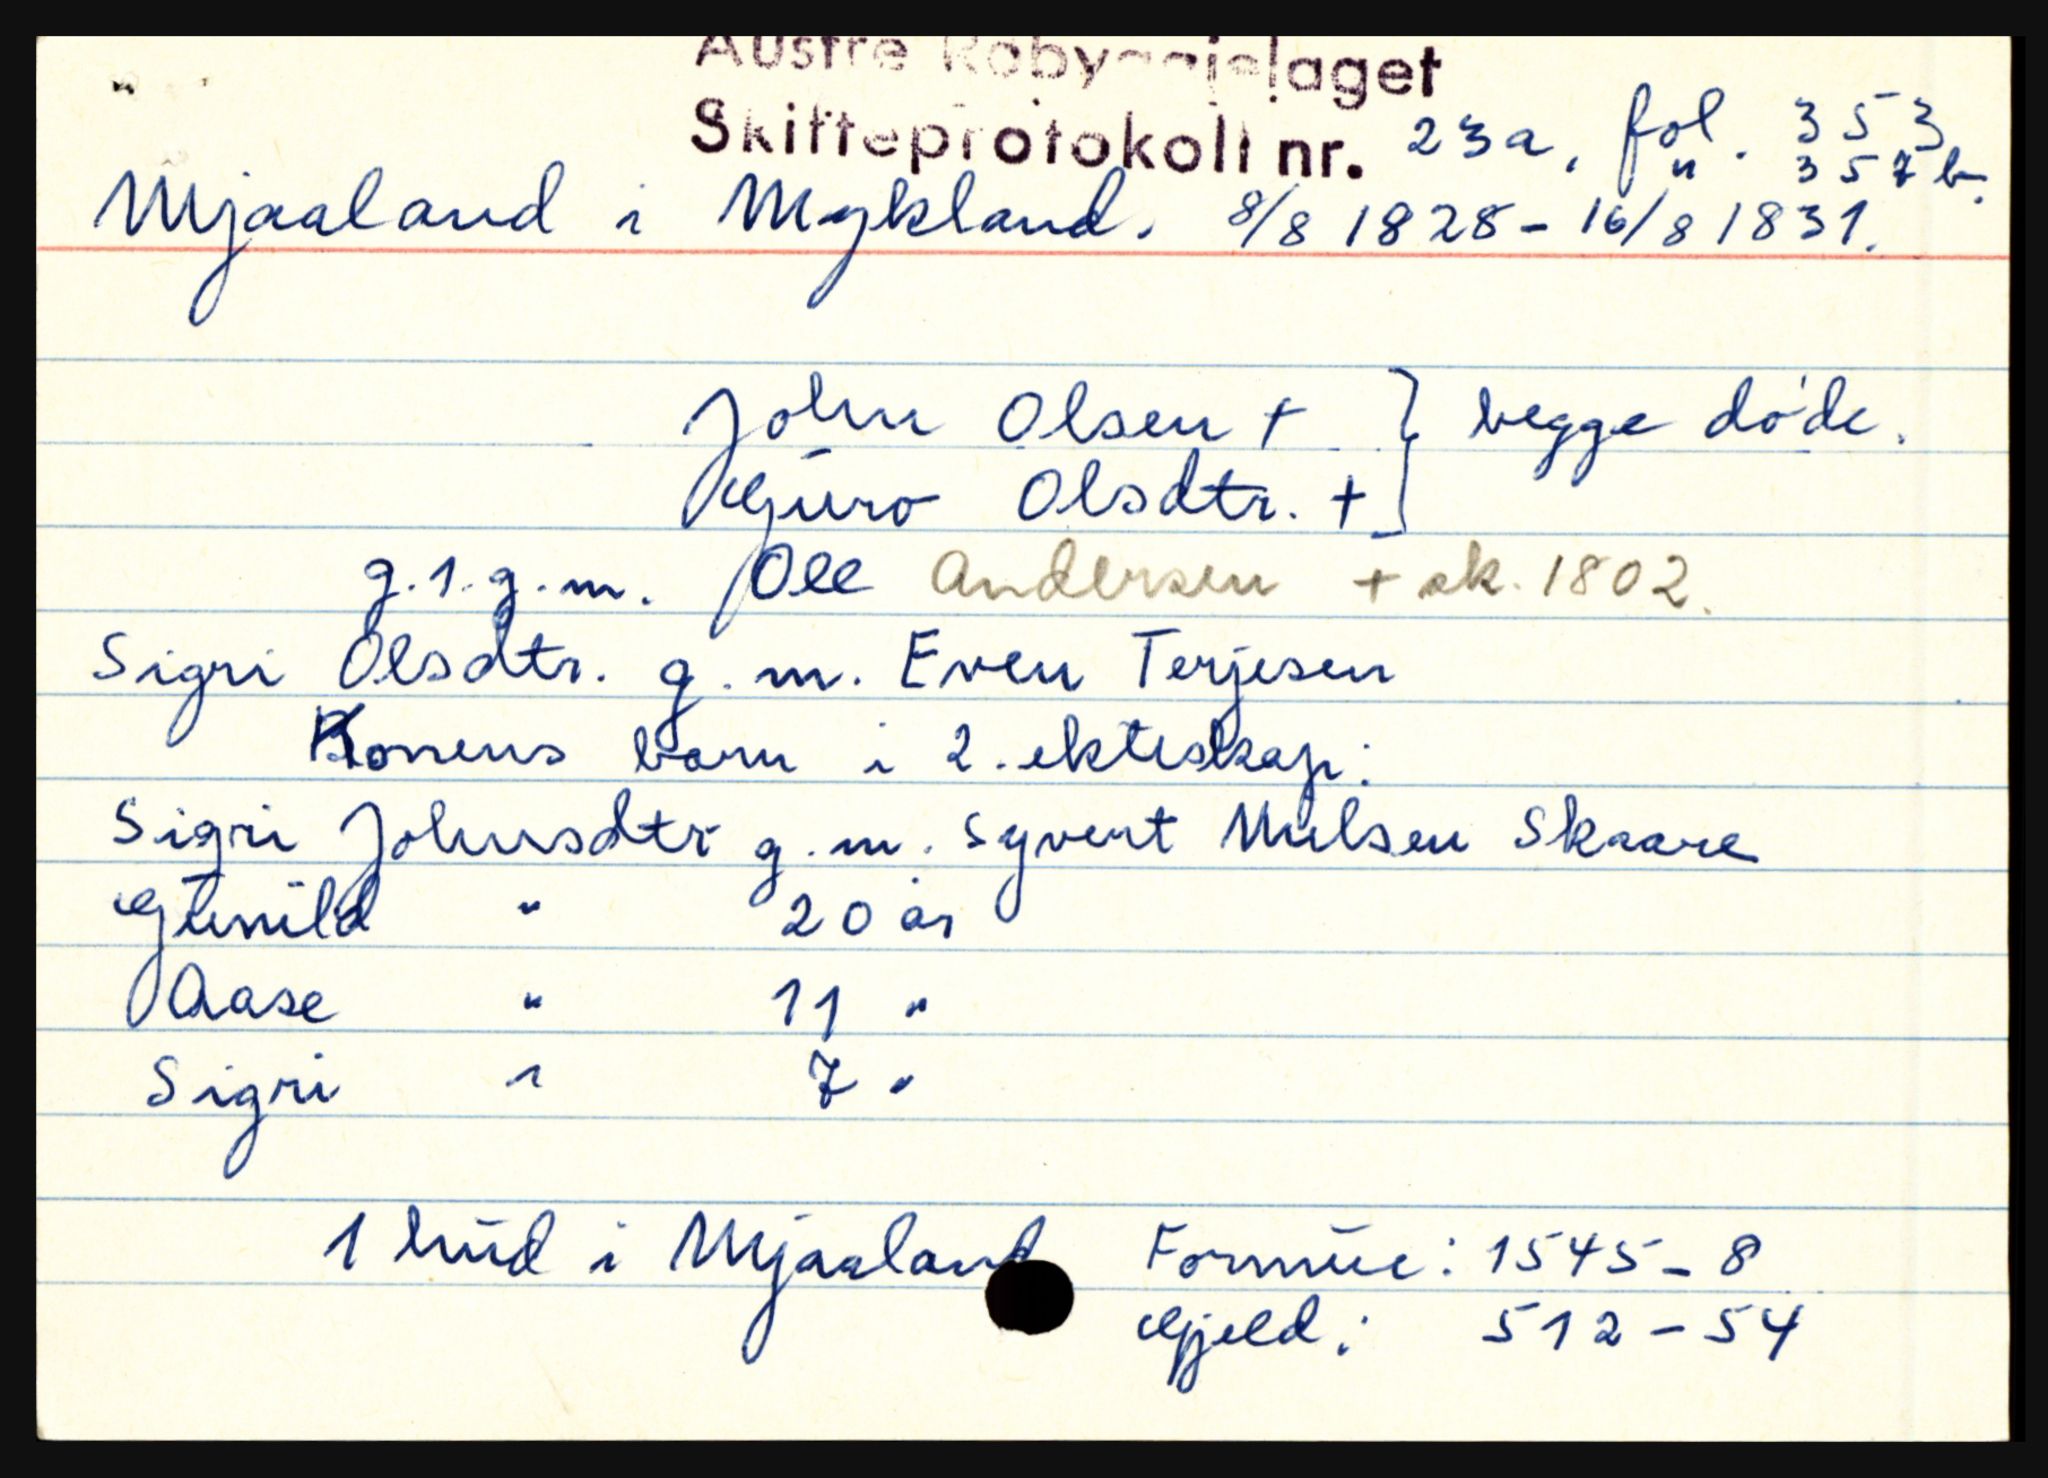 Austre Råbyggjelaget
Skifteprotokoll nr. 23a, fol. 353
" 357b.
Mjaaland i Mykland. 8/8 1828 - 16/8 1831.
John Olsen + } begge døde.
Gūro Olsdtr. +
g.1.g.m. Ole Andersen + sk. 1802.
Sigri Olsdtr. g.m. Even Terjesen
Konens barn i 2. ekteskap:
Sigri Johnsdtr g.m. Syvert Nilsen Skaare
Gūnild " 20 år
Aase " 11 "
Sigri " 7 "
1 hūd i Mjaaland Formūe: 1545 - 8
Gjeld: 512 - 54